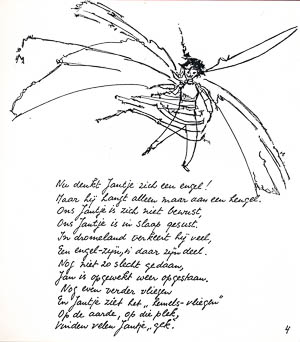 Nu denkt Jantje zich een engel!
Maar hij hangt alleen maar aan een hengel.
Ons Jantje is zich niet bewust,
Ons Jantje is in slaap gesust.
In dromeland verkeert hij veel,
Een engel-zijn, is daar zijn deel.
Nog niet zo slecht gedaan,
Jan is opgewekt weer opgestaan.
Nog even verder vliegen
En Jantje ziet het „hemels-vliegen"
Op de aarde, op die plek,
Vinden velen Jantje „gek".
4